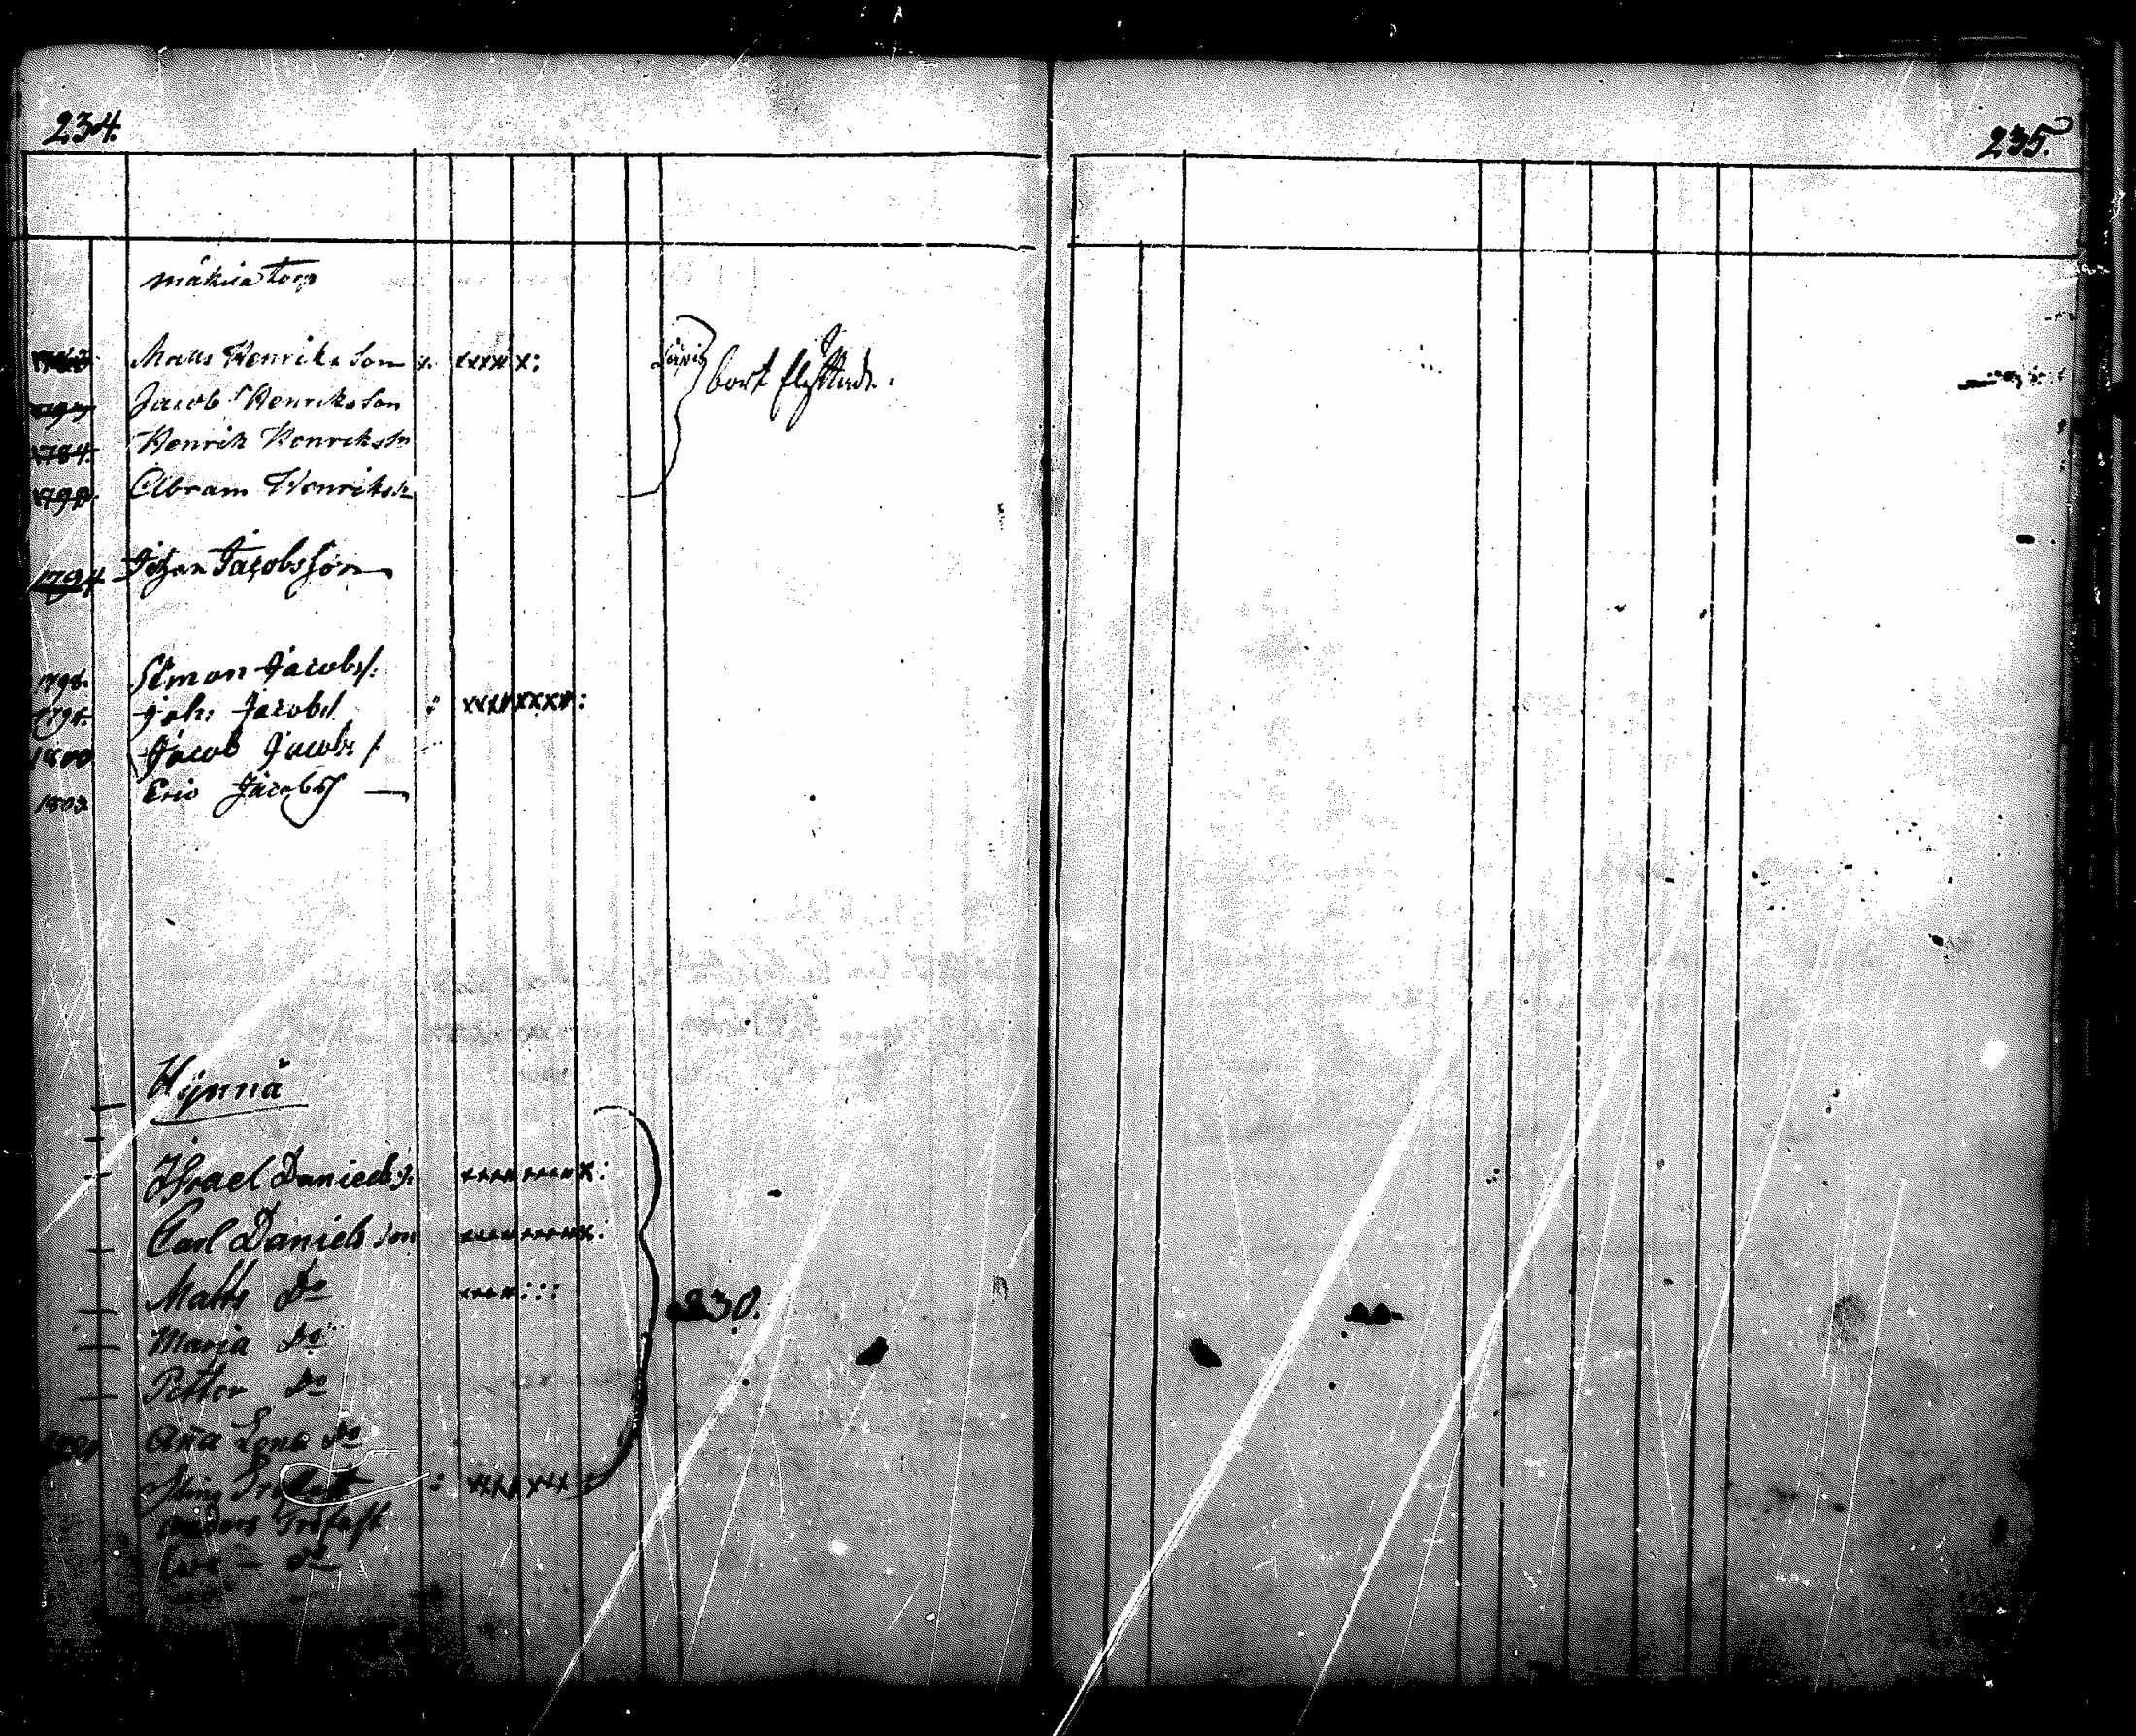 234.
235.
mäkiä torp
Matts Henriks Son x. xxxx x:
bort flyttade.
Jacob Henriksson
1784. Henrik Henrikss
Abram Henrikss
1794 Johan Jacobsson
1798. Simon Jacobs/.
Joh: Jacobs/ : xxxxxxxx:
1800 Jacob Jacobs/
1803. Eric Jacobs/ —
Hynnä
Israel Daniels s. xxxx xxxxx:
Carl Daniels son xxxx xxxxx:
Matts Do xxxx:::
230.
Maria Do
Petter Do
Aña Lena Do
: xxxx xxx
Anders
Do